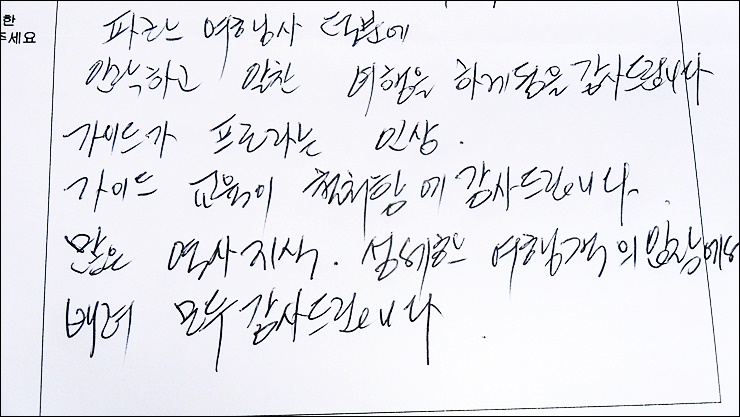 한
주세요
파라는 여행사 덕분에
안락하고 알찬 여행을 하게됨을 감사드립니다
가이드가 프로라는 인상.
가이드 교육이 철저함에 감사드립니다.
많은 역사지식. 섬세한 여행객의 입장에서
배려 모두 감사드립니다